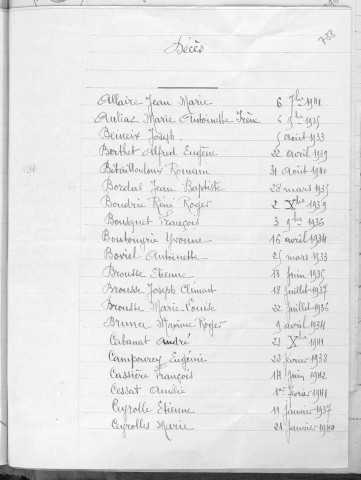 788
Décès
Allaire Jean Marie 6 7bre 1941
Auliac Marie Antoinette Irène 6 9bre 1935
Beineix Joseph 5 août 1933
Berthet Alfred Eugène 22 avril 1939
Bétailloulour Romain 31 août 1940
Bordas Jean Baptiste 28 mars 1935
Boudrie René Roger 2 Xbre 1939
Bousquet François 3 9bre 1936
Boutongrie Yvonne 16 avril 1934
Boviel Antoinette 25 mars 1933
Brousse Etienne 13 juin 1935
Brousse Joseph Clément 18 juillet 1937
Brousse Marie-Louise 22 juillet 1936
Bruna Maxime Roger 9 avril 1934
Cabanat André 23 Xbre 1941
Campourcy Eugénie 23 février 1938
Cassière François 14 juin 1942
Cessat Amélie 1er février 1941
Ceyrolle Etienne 11 janvier 1937
Ceyrolles Marie 21 janvier 1940